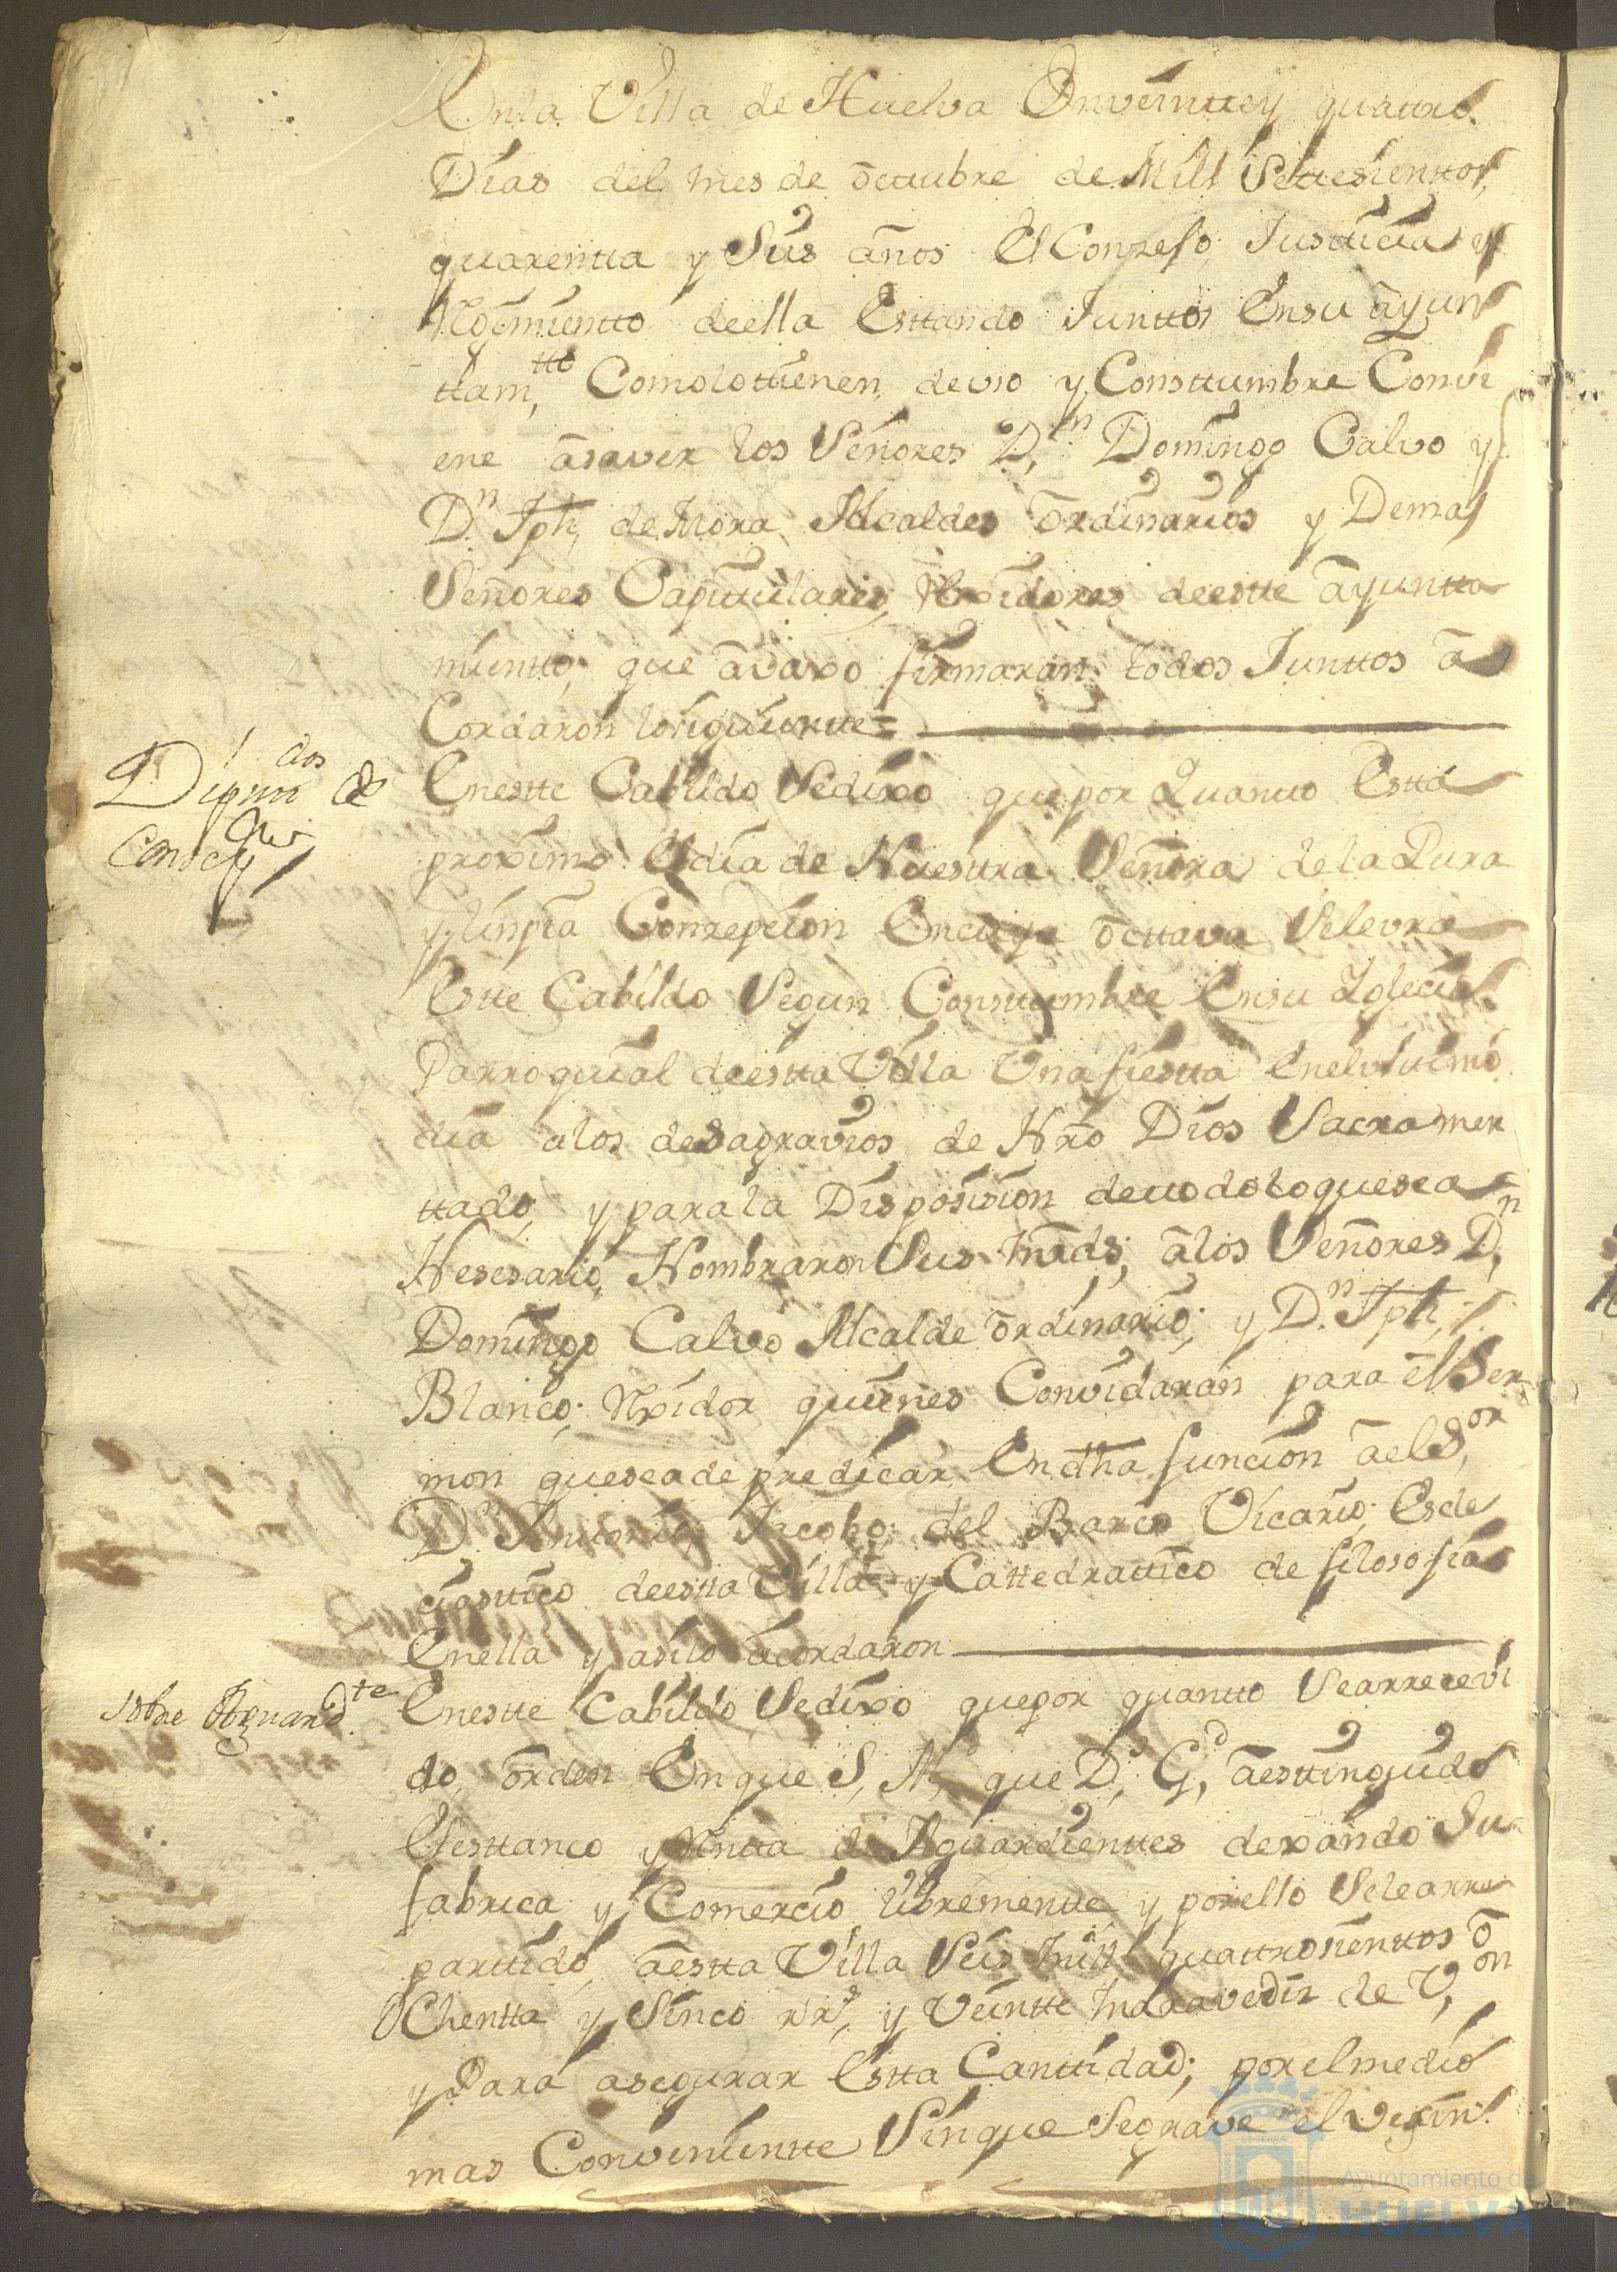 Enla Villa de Huelva Enveintte y quattro
Dias del mes de octtubre de Mill Settesienttos
quarentta y Seis años El Consejo Justticia y
Rẍmientto deella Esttando Junttos Ensu ayun
ttamtto Comolottienen deuso y Consttumbre Convi
ene asaver los Señores Dn Domingo Calvo y
Dn Jph de Mora Alcaldes ordinarios y Demas
Señores Capittulares Rexidores deestte ayuntta
mientto que avaxo firmaran todos Junttos a
Cordaron losiguientte =
Dipudos de
Concepn
Enestte Cabildo Sedixo quepor Quantto Estta
proximo Eldia de Nuesttra Señora de la Pura
y linpia Conzepcion Encuya octtava Selevra
Estte Cabildo Segun Consttumbre Ensu Iglecia
Parroquial deestta Villa Una fiestta Enelvltimo
dia alos desagravios de Nro Dios Sacramen
ttado y para la Disposision detodoloquesea
Nesesario Nombraron Sus mrds, alos Señores Dn
Domingo Calvo Alcalde ordinario, y Dn Jph
Blanco, Rxidor quienes Convidaran para el Ser
mon quesea de predicar Endha funcion ael Sor
Dn Anttonio Jacobo del Barco Vicario Ecle
ciasttico deestta Villa y Cattedrattico de filosofia
Enella y asilo acordaron
sobre Aguardte
Enestte Cabildo Sedixo quepor quantto Searrecevi
do orden Enque S, M, que D, Gd, aesttinguido
Elesttanco y Rentta de Aguardienttes dexando Su
fabrica y Comercio librementte y porello Selearre
parttido aestta Villa Seis mill quattrosienttos o
Chentta y Sinco rrs, y Veintte maravedis de Von
y Para asegurar Estta Canttidad, porelmedio
mas Convenientte Sinque Segrave el vesin
Ayuntamiento de
HUELVA